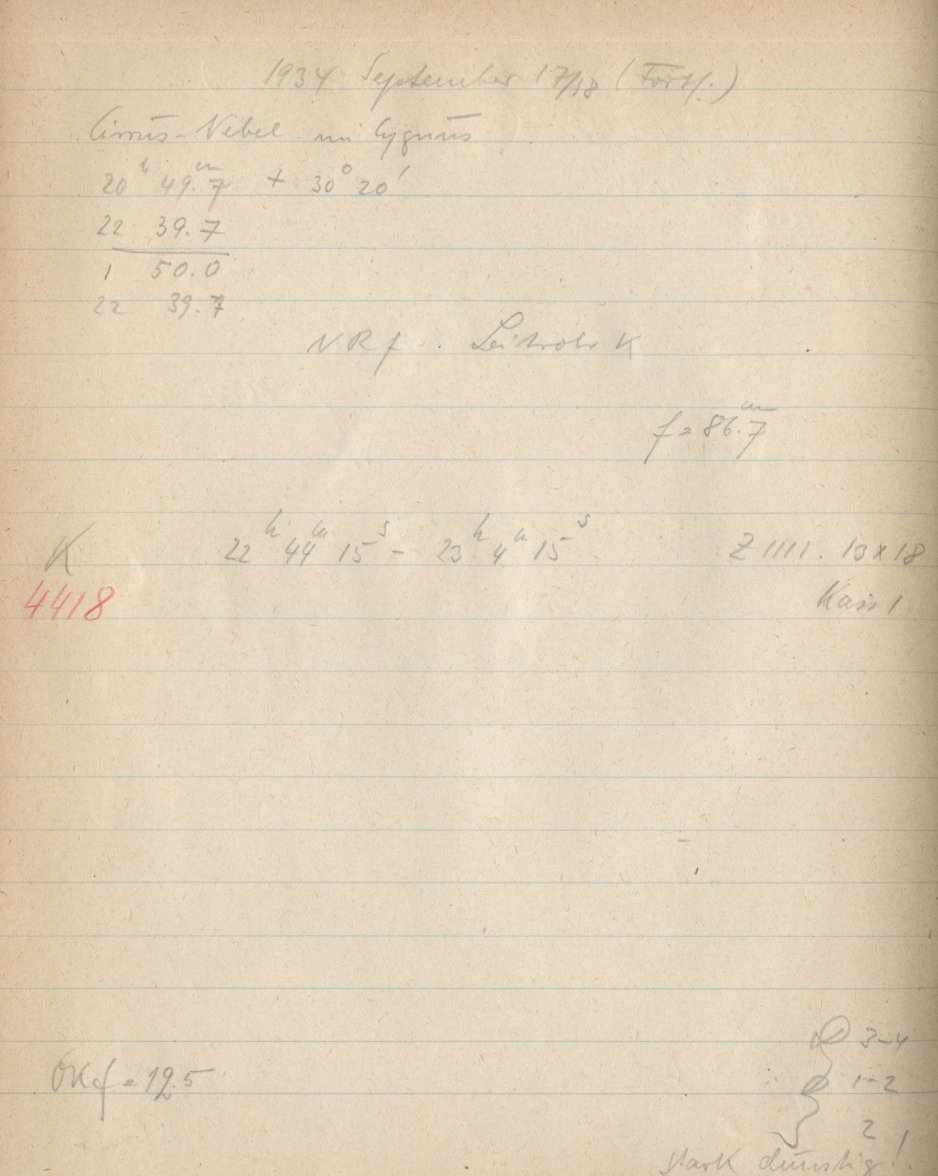 1934 September 17/18 (Forts.)
Cirrus-Nebel im Cygnus
20ʰ 49.7ᵐ + 30° 20'
22 39.7
1 50.0
22 39.7
NRf. Leitrohr K
f = 86.7ᵐ
K 22ʰ 44ᵐ 15ˢ - 23ʰ 4ᵐ 15ˢ Z 1111. 13x18
4418 Kass 1
3-4
OKf = 19.5 1-2
2
stark dunstig!